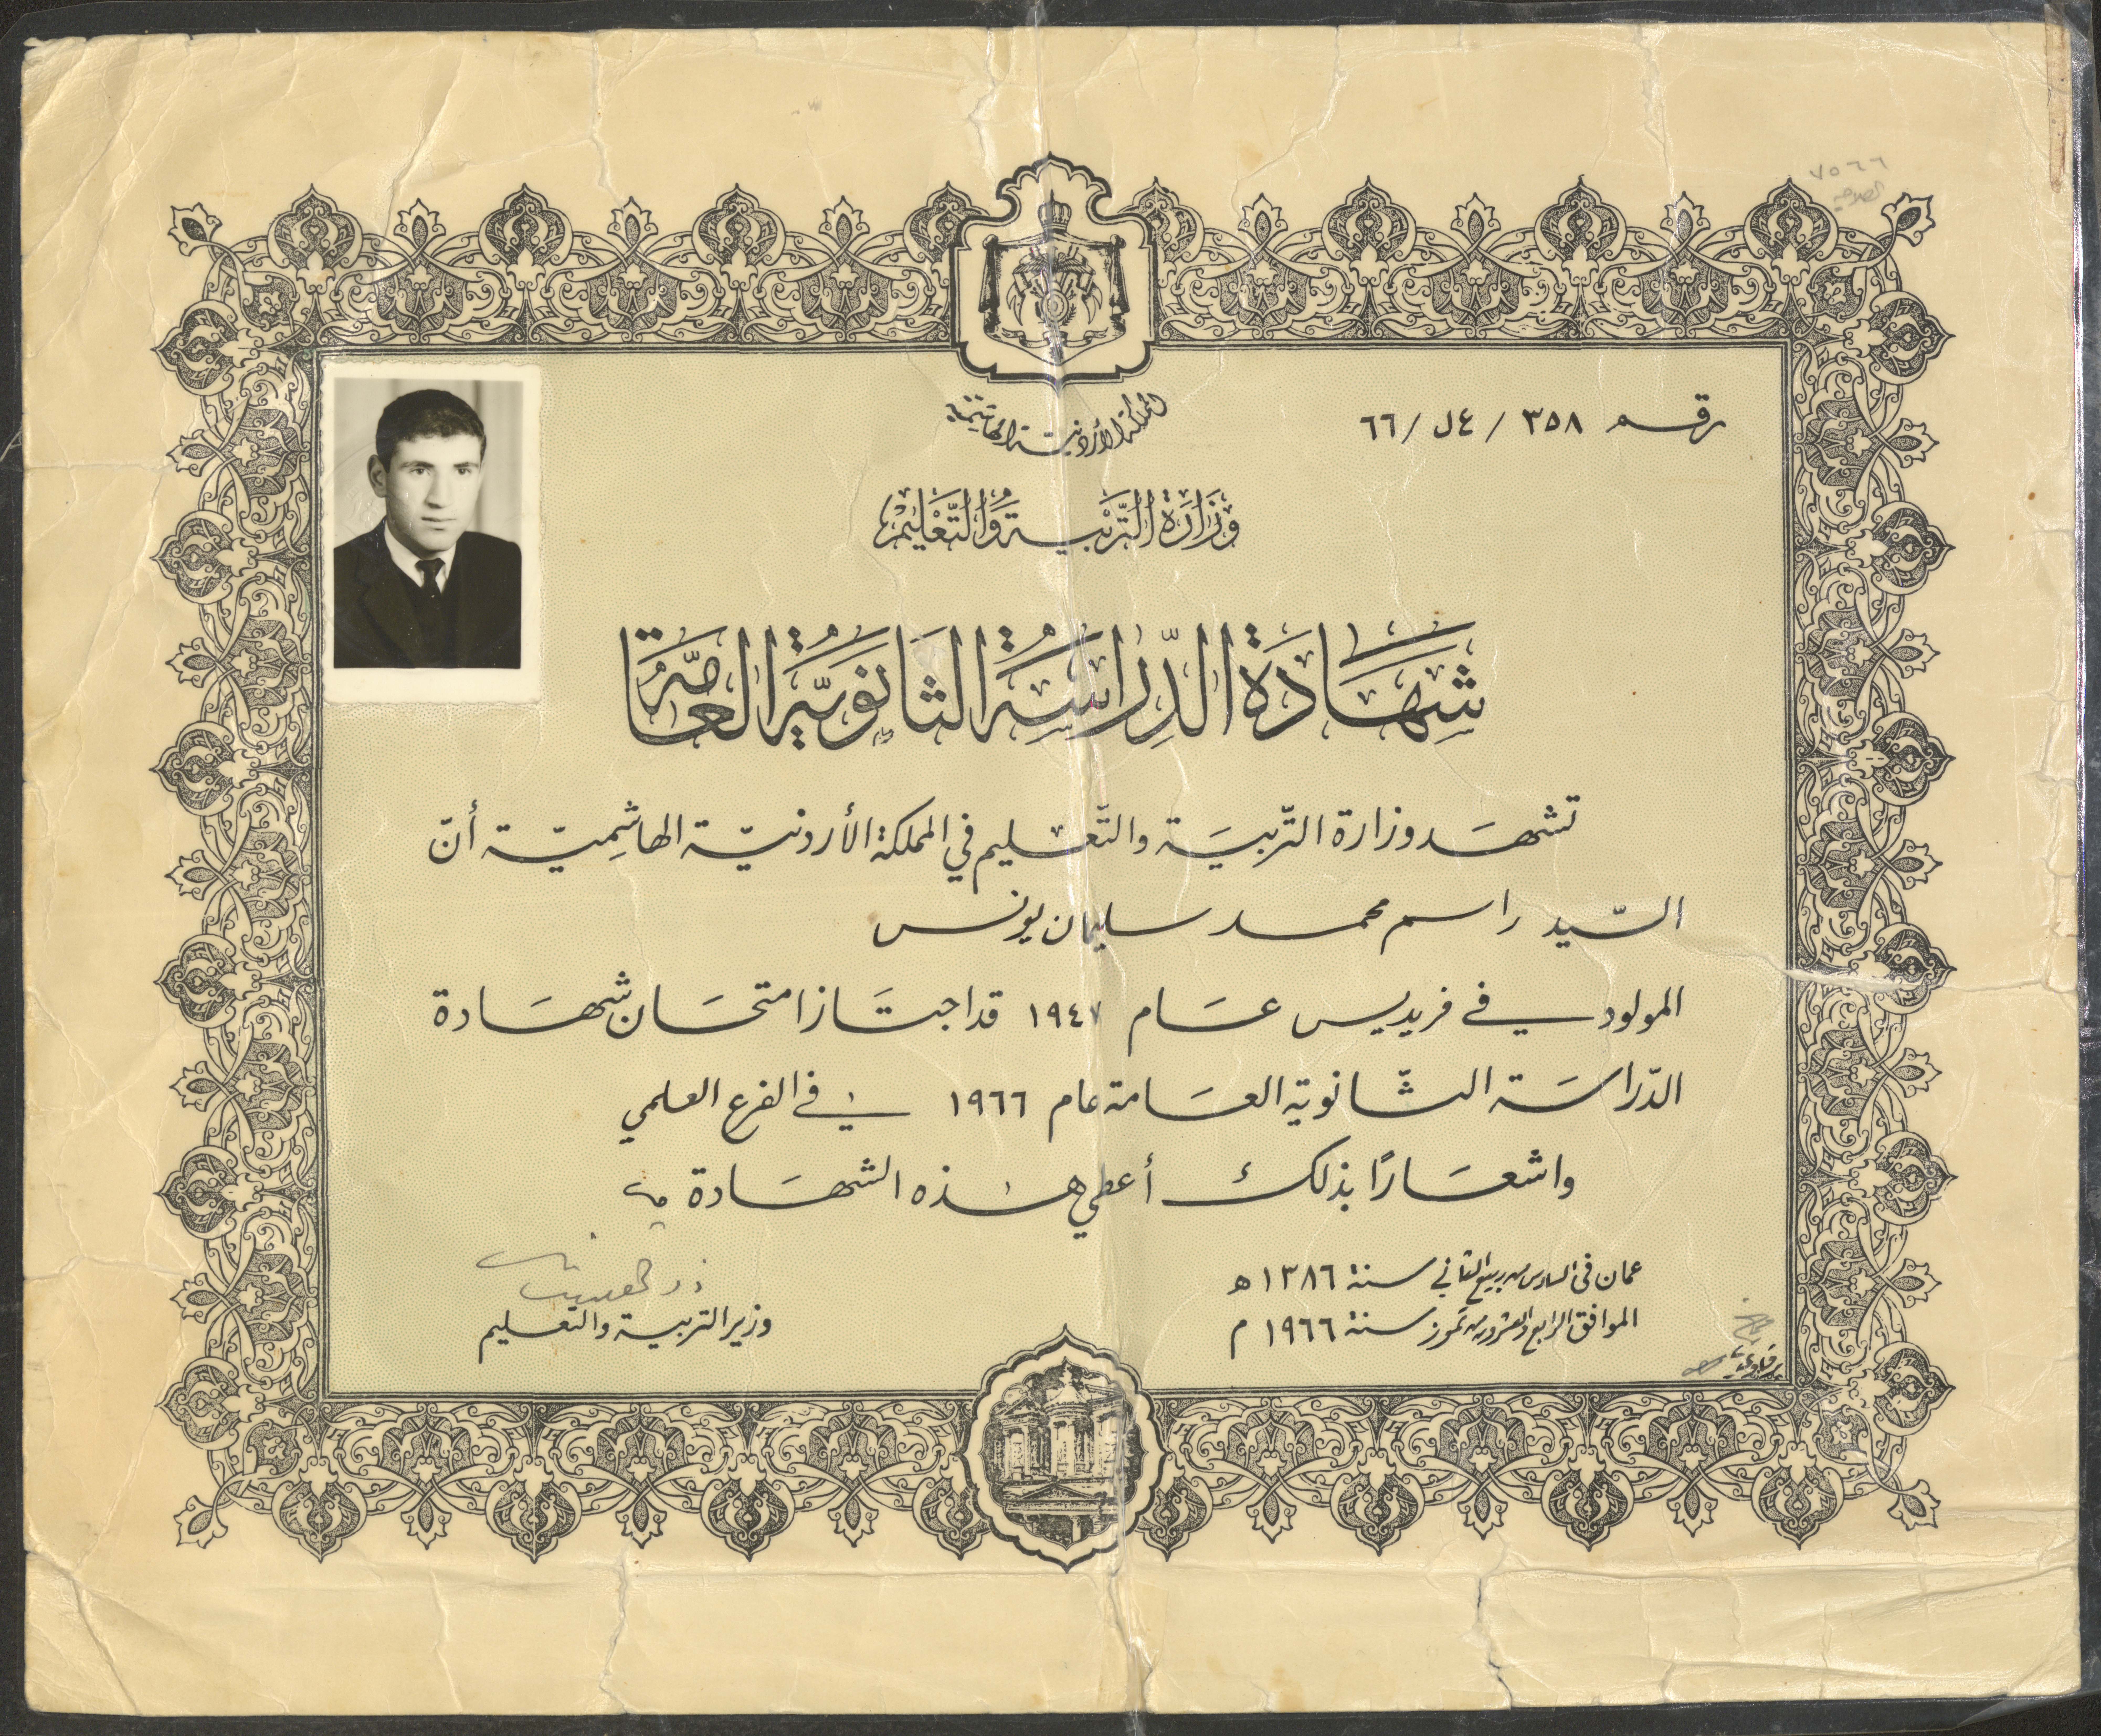 ٧٥٦٦
المملكة الأردنية الهاشمية
رقم ٣٥٨ / ٤ل / ٦٦
وَزَارَةُ التَّرْبِيَةِ وَالتَّعْلِيمْ
شَهَادَةُ الدِّرَاسَةِ الثَّانَوِيَّةِ العَامَّة
تشهَد وزارة التّربيَة والتّعليم في المملكة الأردنيّة الهاشِميّة أنّ
السّيد راسم محمد سليمان يونس
المولود في فريديس عَام ١٩٤٧ قد اجتَاز امتحَان شهَادة
الدّراسَة الثّانوية العَامة عام ١٩٦٦ في الفرع العلمي
واشعَارًا بذلك أعطي هذه الشهَادة
عمان في السادس من ربيع الثاني سنة ١٣٨٦ ه
الموافق الرابع والعشرون من تموز سنة ١٩٦٦ م
وزير التربية والتعليم